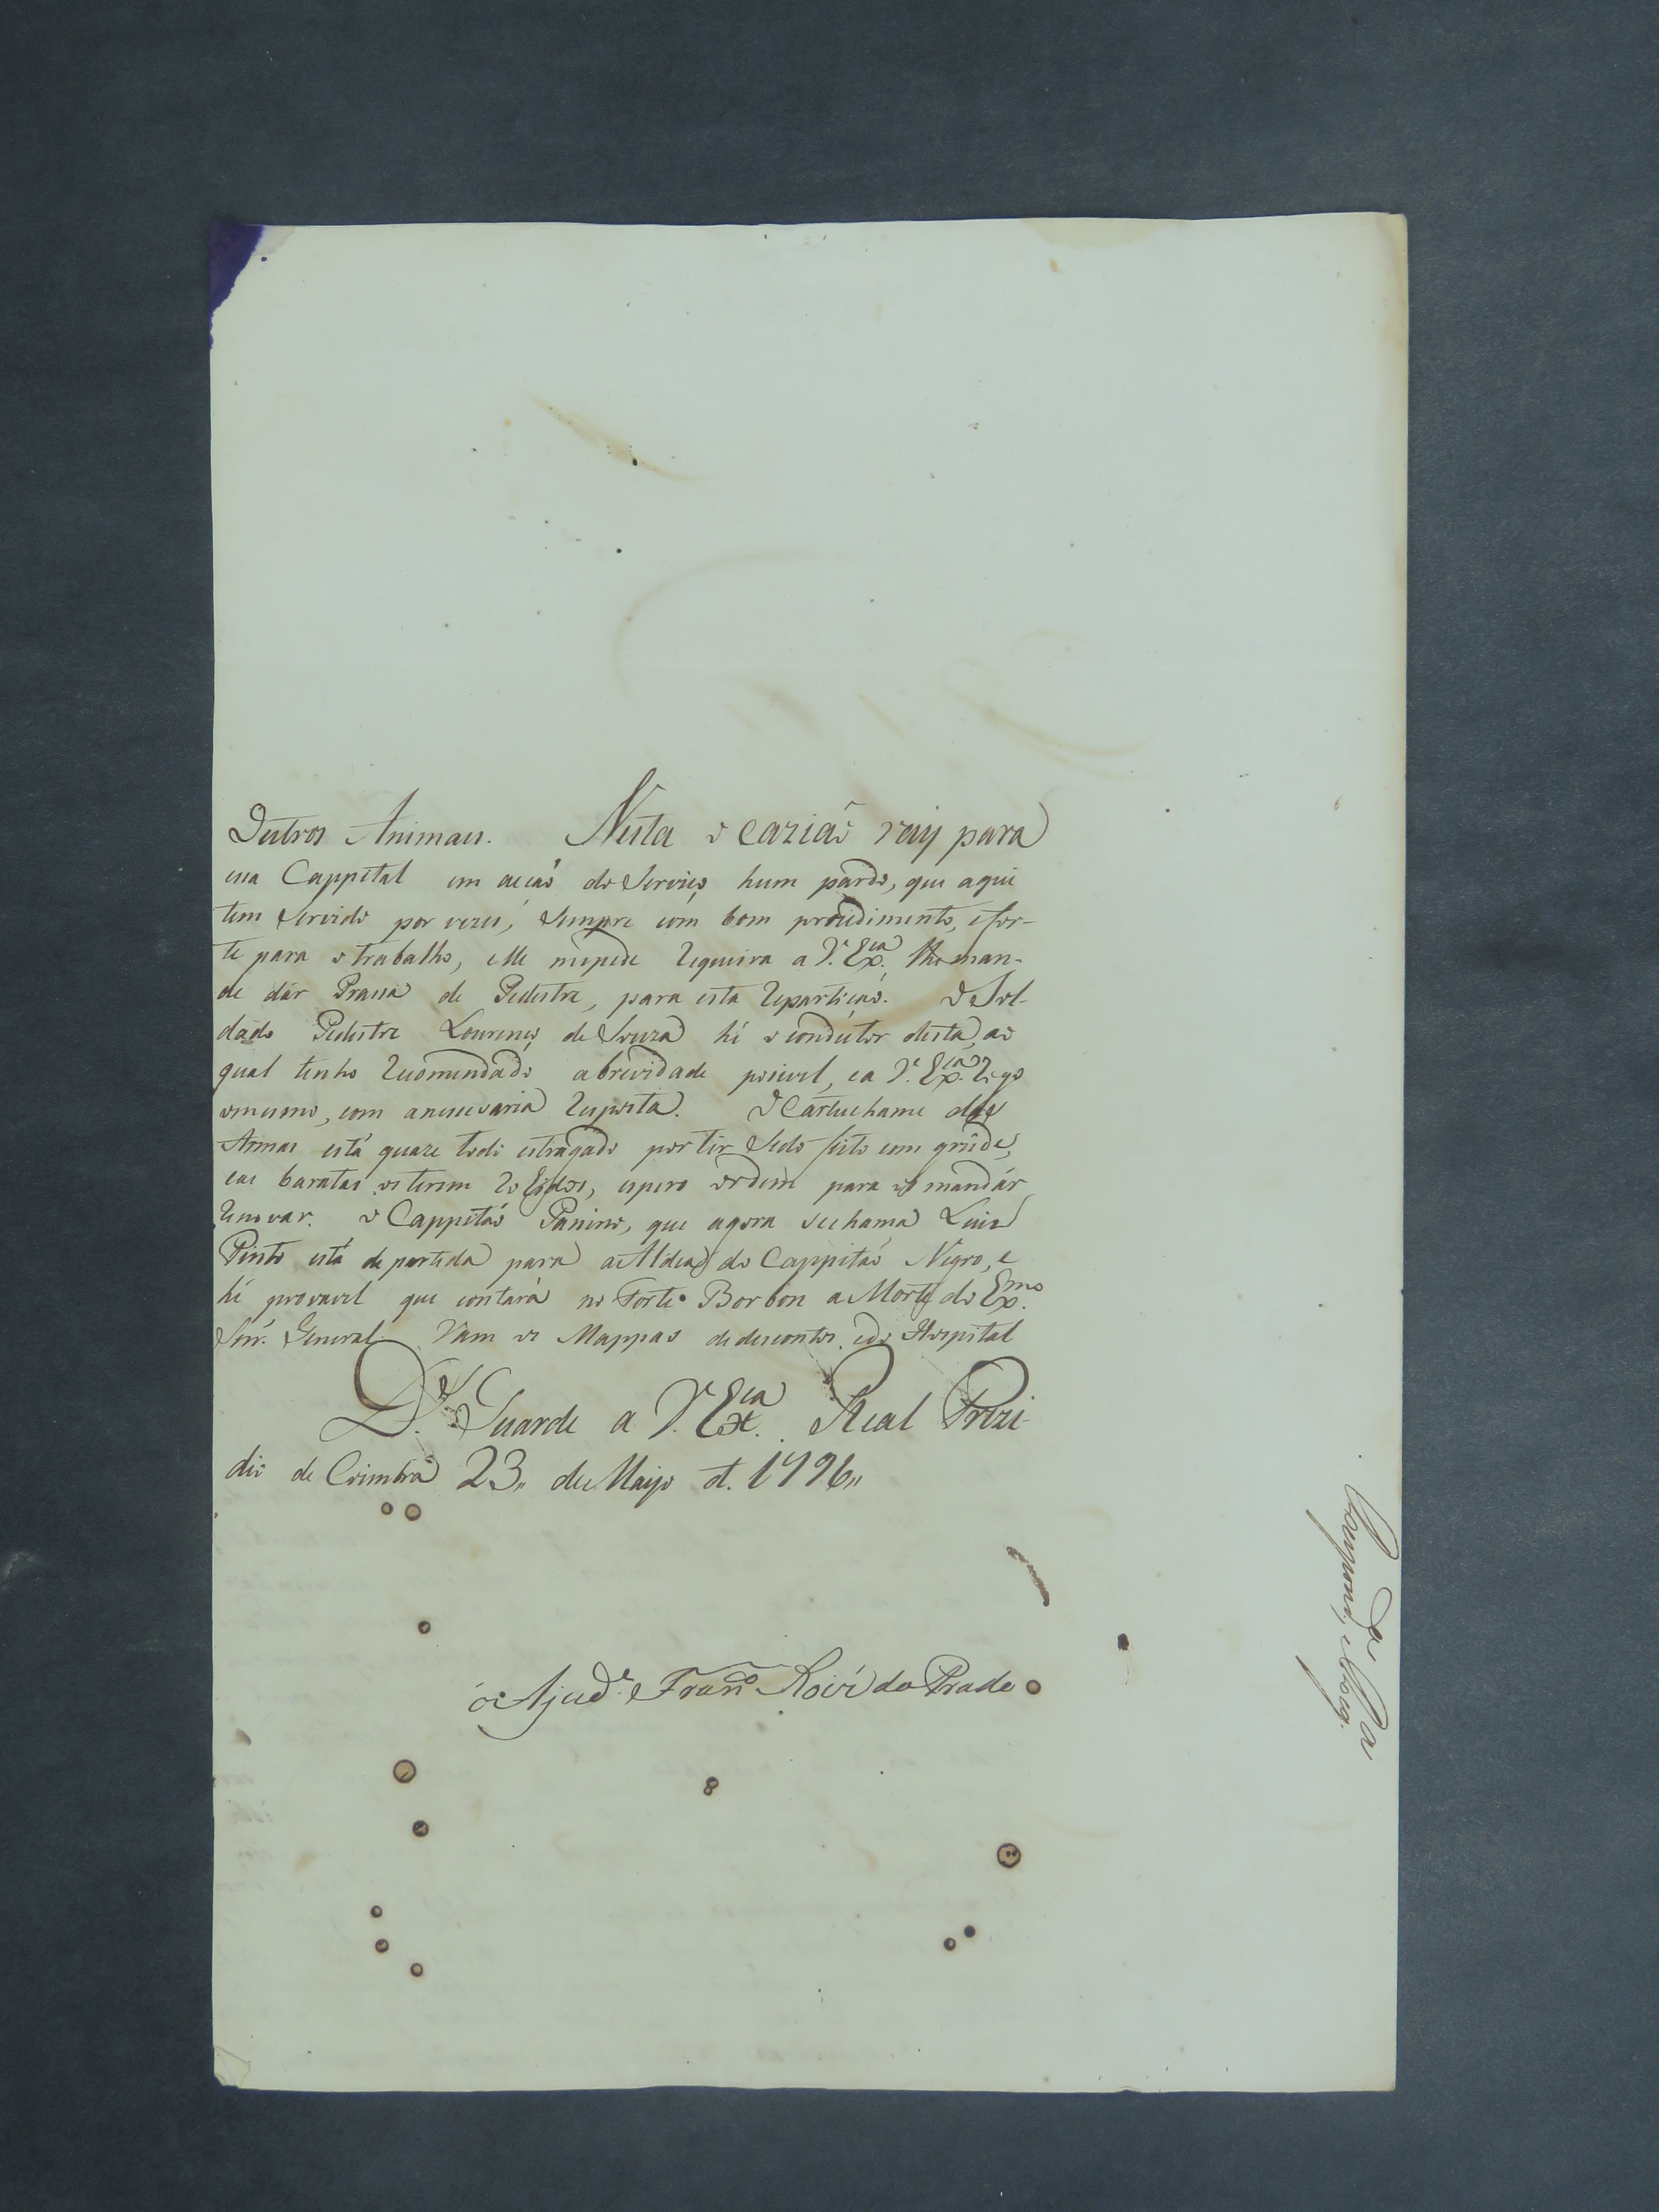 Outros Animaes. Nesta ocaziaõ vay para
essa Cappital em acçaõ do Serviço hum pardo, que aqui
tem Servido por vezes, Sempre com bom procedimento, e for-
te para o trabalho, elle mepede Requeira a V. Exª. lhe man-
de dár Prassa de Pedestre, para esta Repartiçaõ. O Sol-
dado Pedestre Lourenço de Souza hé o condutor desta, ao
qual tenho Recomendado abrevidade posivel, ea V. Exª. Rogo
omesmo, com anessesaria Resposta. O Cartuchame das
Armas está quaze todo estragado por ter Sido feito com grude,
eas baratas os terem Rohidos, espero ordem para o mandár
Renovar. o Cappitaõ Panino, que agora sechama Luis
Pinto está departida para a Aldea do Cappitaõ Negro, e
hé provavel que contará no Forte Borbon a Morte do Exmo.
Snr. General. Vam os Mappas dedescontos, edo Hospital
Ds. Guarde a V. Exca. Real Prezi-
dio de Coimbra 23,, de Mayo d. 1796,,
o Ajude. Franco Roiz' do Prado